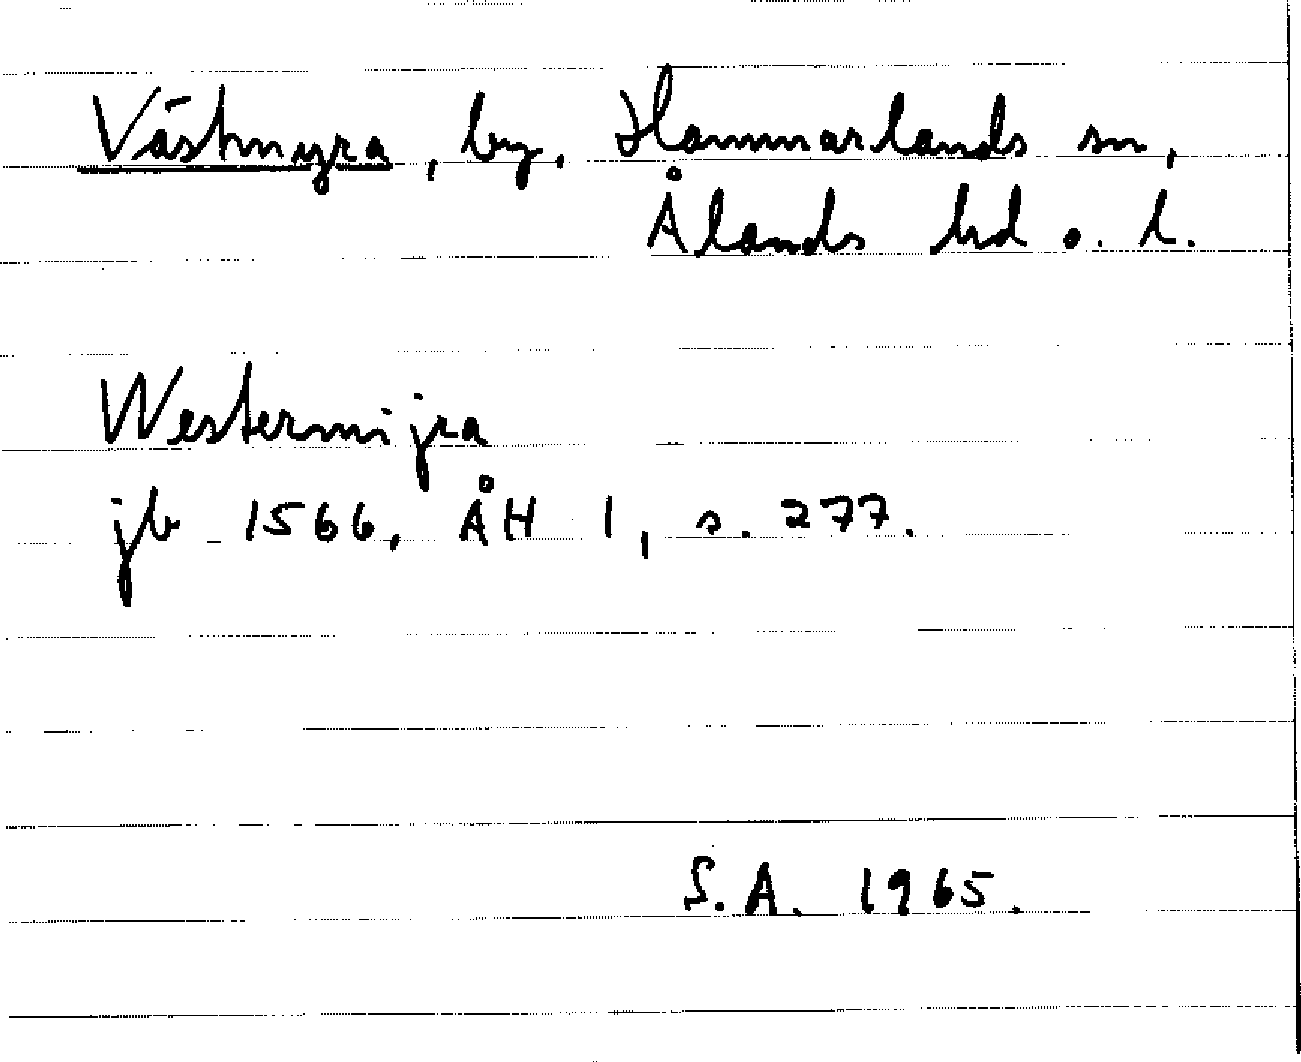 Västmyra, by, Hammarlands sn,
Ålands hd o. l.
Westermijra
jb 1566, ÅH 1, s. 277.
S.A. 1965.